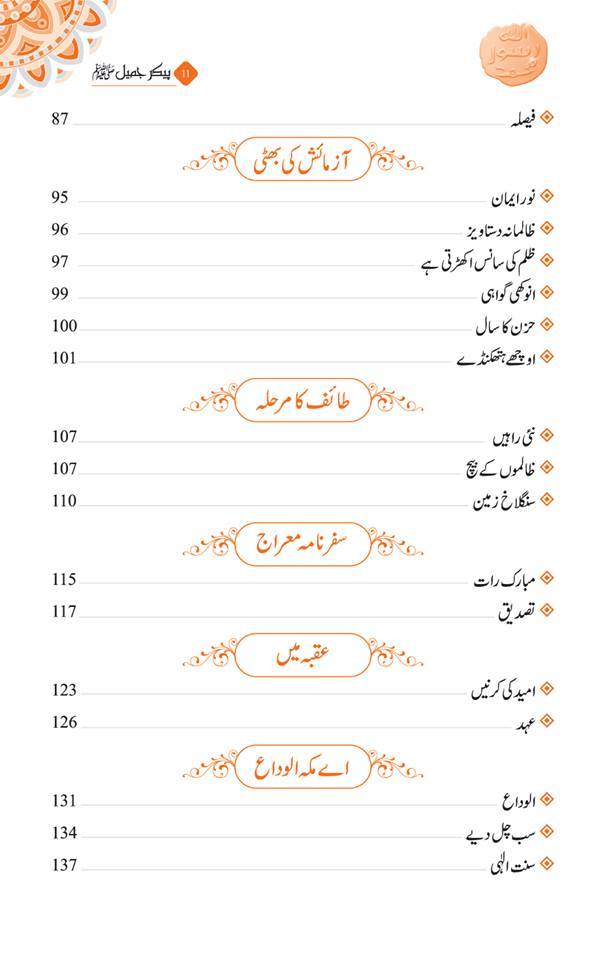 الله
رسول
محمد
11 پیکر جمیل ﷺ
فیصلہ 87
آزمائش کی بھٹی
نور ایمان 95
ظالمانہ دستاویز 96
ظلم کی سانس اکھڑتی ہے 97
انوکھی گواہی 99
حزن کا سال 100
اوچھے ہتھکنڈے 101
طائف کا مرحلہ
نئی راہیں 107
ظالموں کے بیچ 107
سنگلاخ زمین 110
سفرنامہ معراج
مبارک رات 115
تصدیق 117
عقبہ میں
امید کی کرنیں 123
عہد 126
اے مکہ الوداع
الوداع 131
سب چل دیے 134
سنت الٰہی 137